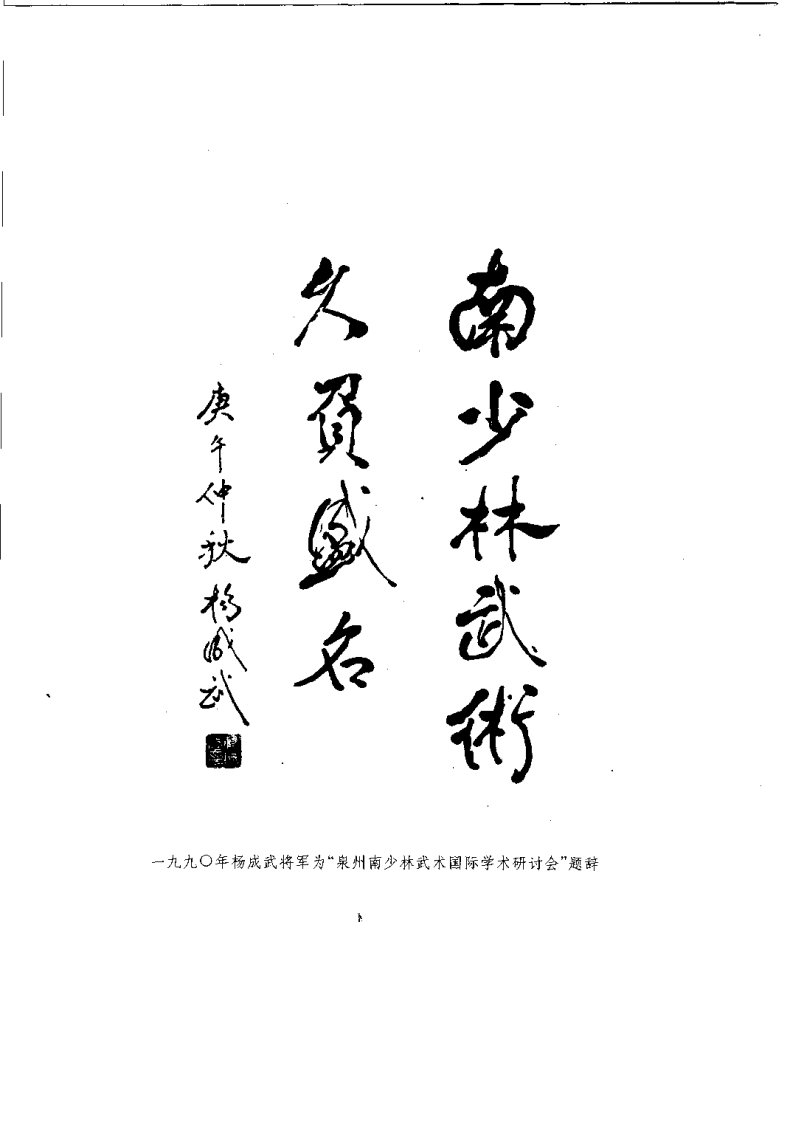 南少林武術
久負盛名
庚午仲秋 楊成武
一九九〇年杨成武将军为“泉州南少林武术国际学术研讨会”题辞